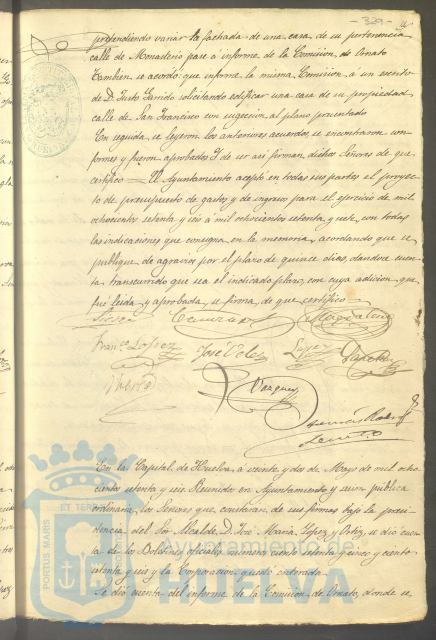 329
pretendiendo variar la fachada de una casa de su pertenencia
calle de Monasterio pase a informe de la Comision de Ornato
Tambien se acordó que informe la misma Comision, á un escrito
de D. Justo Garrido solicitando edificar una casa de su propiedad
calle de San Francisco con sugecion al plano presentado
En seguida se leyeron los anteriores acuerdos, se encontraron con-
formes y fueron aprobados y de ser asi firman dichos Señores de que
certifico = El Ayuntamiento aceptó en todas sus partes el proyec-
to de presupuesto de gastos y de ingresos para el ejercicio de mil
ochocientos setenta y seis á mil ochocientos setenta y siete, con todas
las indicaciones que consigna en la memoria, acordando que se
publique de agravios por el plazo de quince dias, dandose cuen-
ta transcurrido que sea el indicado plazo, con cuya adicion que
fué leida y aprobada, se firma, de que certifico =
Magdalena
Franco Lopez
José Velez
Lopez
Sanchez
Vazquez
En la Capital de Huelva, á veinte y dos de Mayo de mil ocho-
cientos setenta y seis. Reunidos en Ayuntamiento y sesion pública
ordinaria, los Señores que constaran de sus firmas bajo la presi-
dencia del Sor. Alcalde D. José Maria Lopez y Ortiz, se dió cuen-
ta de los Boletines oficiales numeros ciento setenta y cinco y ciento
setenta y seis y la Corporacion quedó enterada.
Se dió cuenta del informe de la Comision de Ornato, donde se
PORTUS MARIS
ET TERRAE
Ayuntamiento de
HUELVA